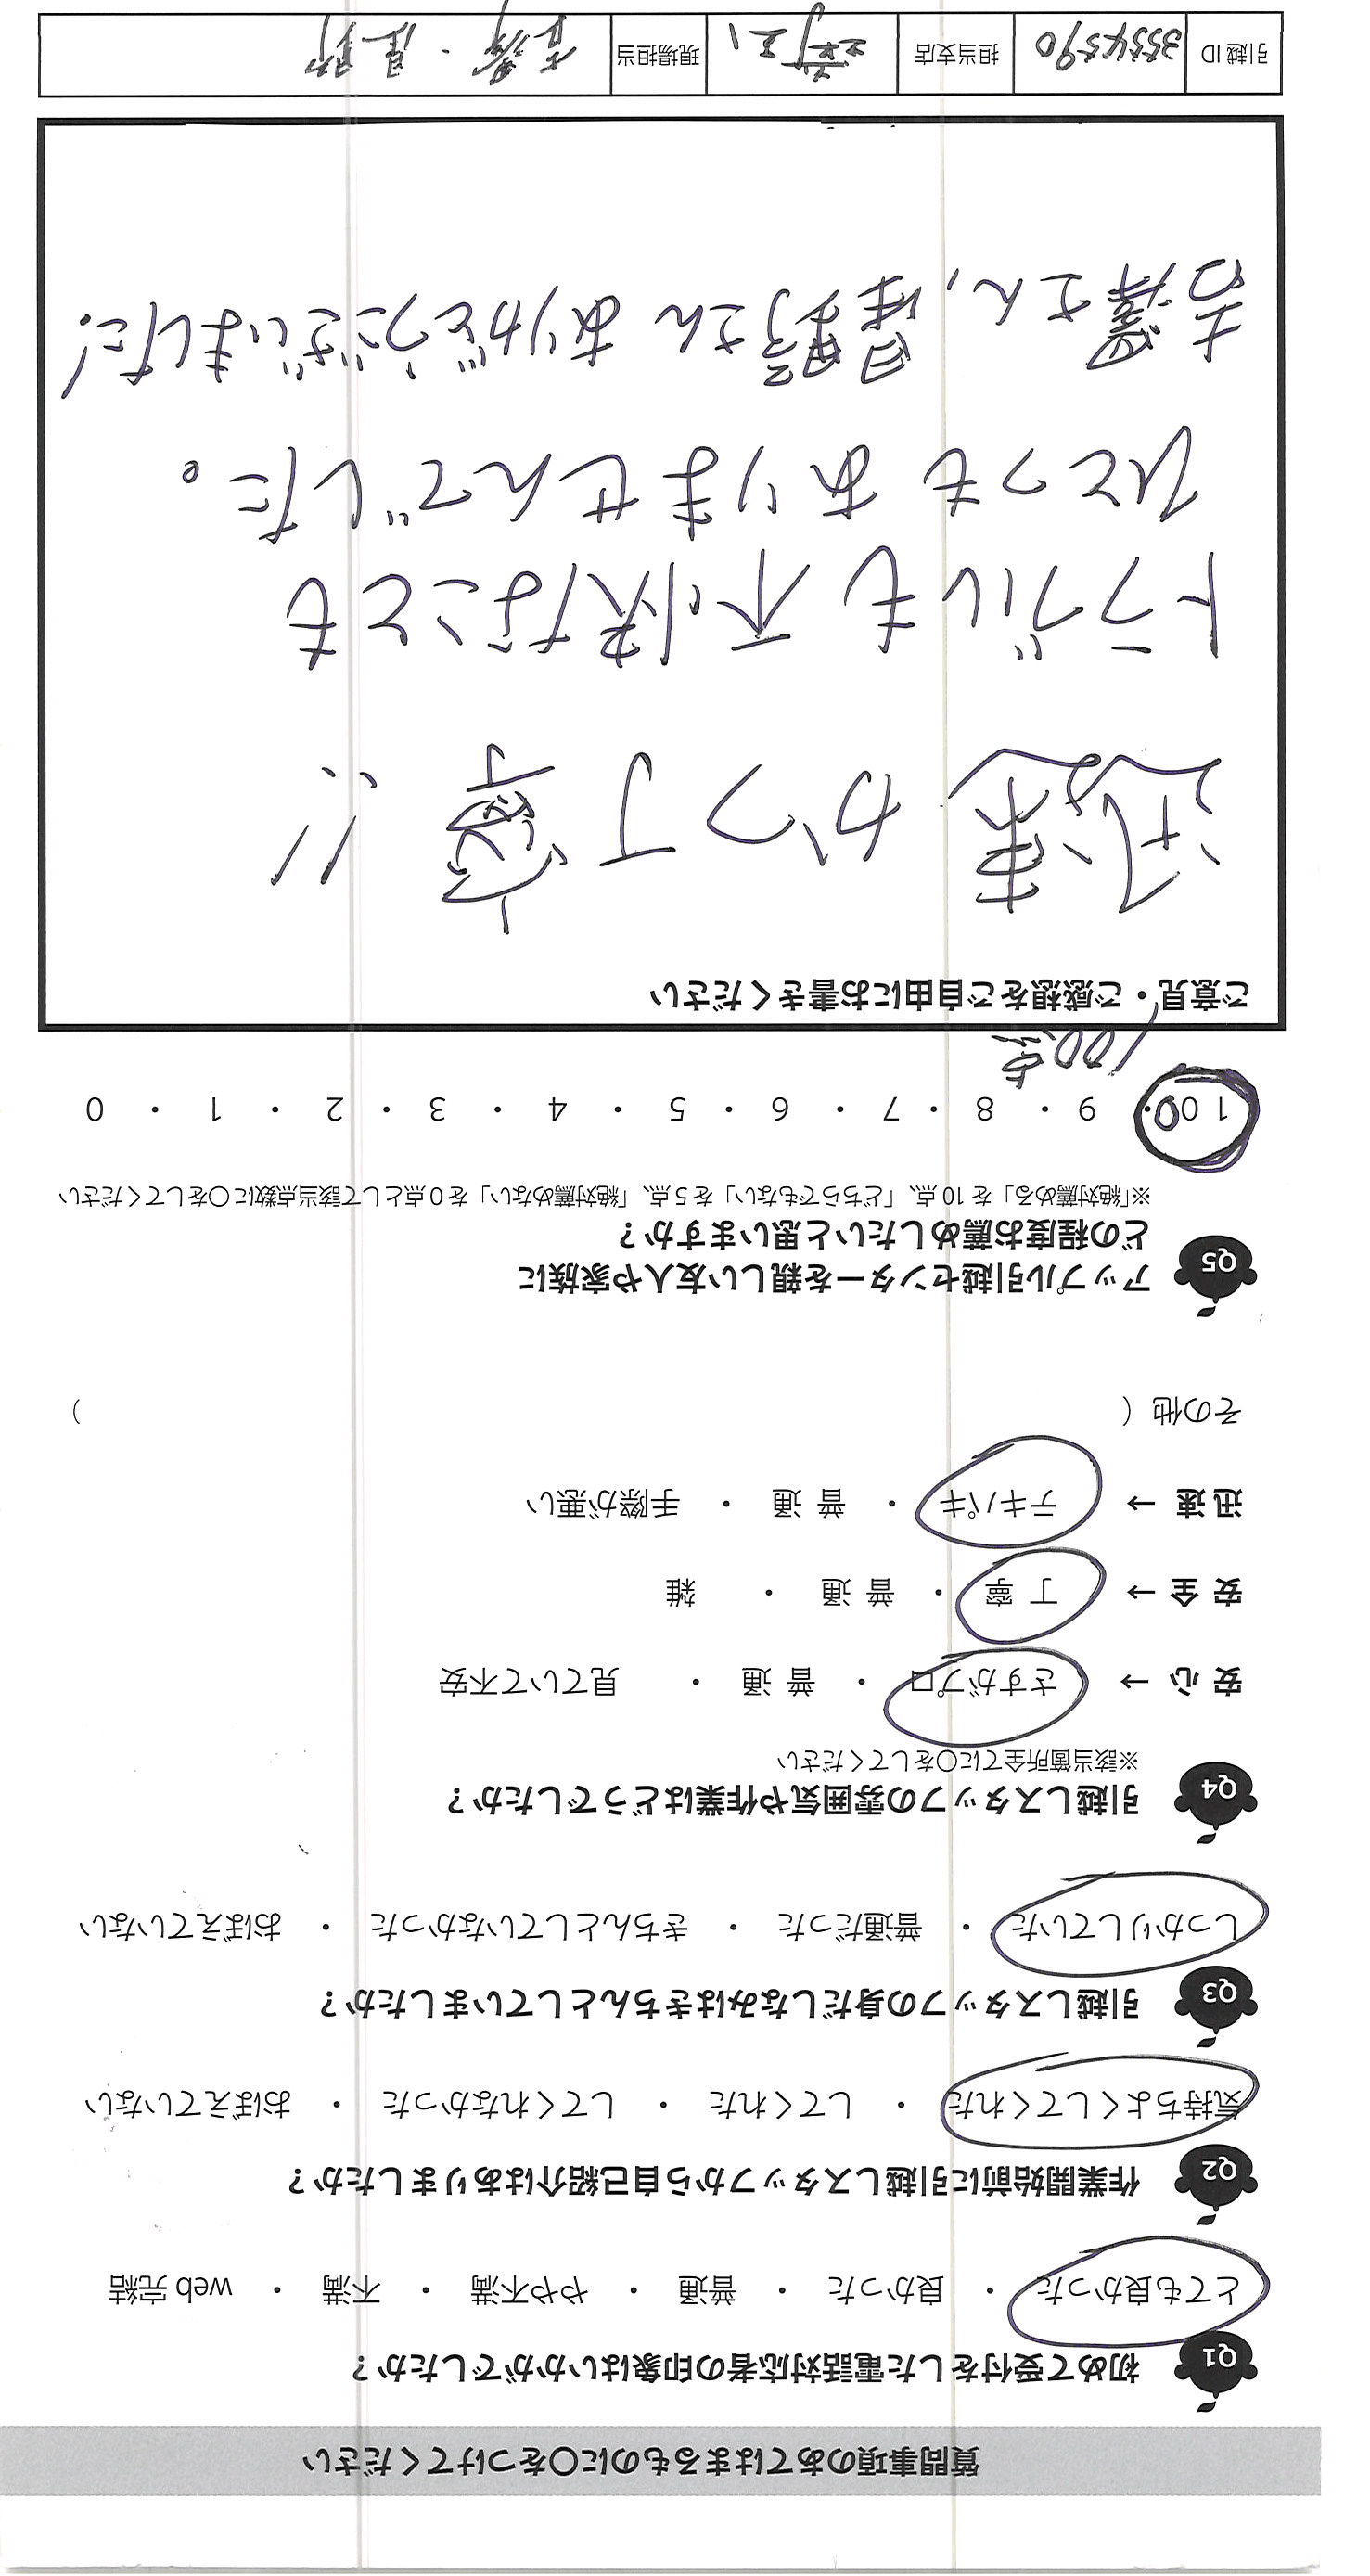 質問事項のあてはまるものに〇をつけてください
Q1 初めて受付をした電話対応者の印象はいかがでしたか？
とても良かった ・ 良かった ・ 普通 ・ やや不満 ・ 不満 ・ web 完結
Q2 作業開始前に引越しスタッフから自己紹介はありましたか？
気持ちよくしてくれた ・ してくれた ・ してくれなかった ・ おぼえていない
Q3 引越しスタッフの身だしなみはきちんとしていましたか？
しっかりしていた ・ 普通だった ・ きちんとしていなかった ・ おぼえていない
Q4 引越しスタッフの雰囲気や作業はどうでしたか？
※該当箇所全てに〇をしてください
安心 → さすがプロ ・ 普通 ・ 見ていて不安
安全 → 丁寧 ・ 普通 ・ 雑
迅速 → テキパキ ・ 普通 ・ 手際が悪い
その他（ ）
Q5 アップル引越センターを親しい友人や家族に
どの程度お薦めしたいと思いますか？
※「絶対薦める」を 10 点、「どちらでもない」を 5 点、「絶対薦めない」を 0 点として該当点数に〇をしてください
100 ・ 9 ・ 8 ・ 7 ・ 6 ・ 5 ・ 4 ・ 3 ・ 2 ・ 1 ・ 0
100点
ご意見・ご感想をご自由にお書きください
迅速かつ丁寧!!
トラブルも不快なことも
ひとつもありませんでした。
さん、さん ありがとうございました!
引越 ID 35545590 担当支店 現場担当